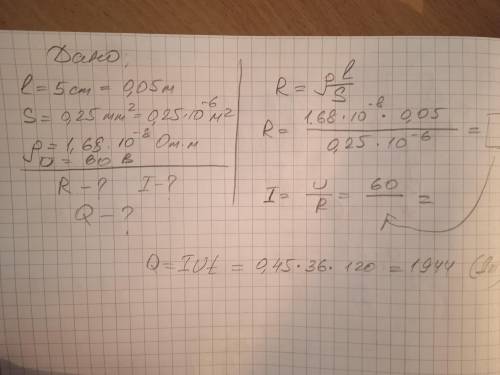 Дано:
l = 5 cm = 0,05 м
S = 0,25 мм² = 0,25·10⁻⁶ м²
ρ = 1,68·10⁻⁸ Ом·м
U = 60 В
R - ? I - ?
Q - ?
R = ρ l/S
R = 1,68·10⁻⁸ · 0,05 / 0,25·10⁻⁶ =
I = U/R = 60/R =
Q = IUt = 0,45·36·120 = 1944